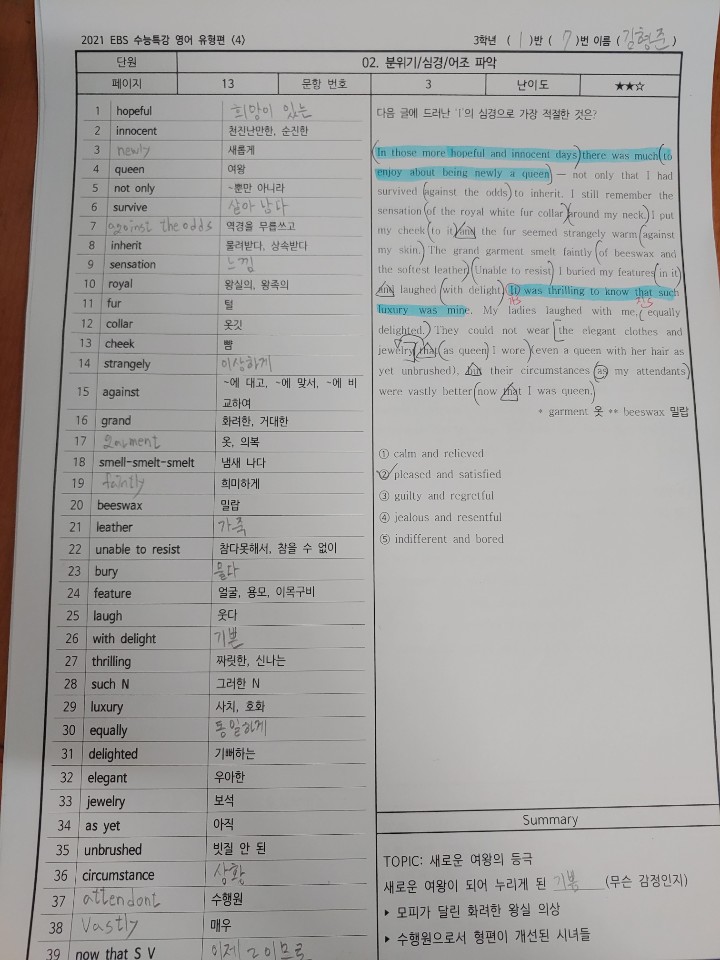 2021 EBS 수능특강 영어 유형편 <4>
3학년 ( 1 )반 ( 7 )번 이름 ( 김형준 )
단원 02. 분위기/심경/어조 파악
페이지 13 문항 번호 3 난이도 ★★☆
1 hopeful 희망이 있는
2 innocent 천진난만한, 순진한
3 newly 새롭게
4 queen 여왕
5 not only ~뿐만 아니라
6 survive 살아 남다
7 against the odds 역경을 무릅쓰고
8 inherit 물려받다, 상속받다
9 sensation 느낌
10 royal 왕실의, 왕족의
11 fur 털
12 collar 옷깃
13 cheek 뺨
14 strangely 이상하게
15 against ~에 대고, ~에 맞서, ~에 비
교하여
16 grand 화려한, 거대한
17 garment 옷, 의복
18 smell-smelt-smelt 냄새 나다
19 faintly 희미하게
20 beeswax 밀랍
21 leather 가죽
22 unable to resist 참다못해서, 참을 수 없이
23 bury 묻다
24 feature 얼굴, 용모, 이목구비
25 laugh 웃다
26 with delight 기쁜
27 thrilling 짜릿한, 신나는
28 such N 그러한 N
29 luxury 사치, 호화
30 equally 동일하게
31 delighted 기뻐하는
32 elegant 우아한
33 jewelry 보석
34 as yet 아직
35 unbrushed 빗질 안 된
36 circumstance 상황
37 attendont 수행원
38 Vastly 매우
39 now that S V 이제 ~이므로
다음 글에 드러난 'I'의 심경으로 가장 적절한 것은?
In those more hopeful and innocent days there was much to
enjoy about being newly a queen — not only that I had
survived against the odds to inherit. I still remember the
sensation of the royal white fur collar around my neck. I put
my cheek to it and the fur seemed strangely warm against
my skin. The grand garment smelt faintly of beeswax and
the softest leather. Unable to resist I buried my features in it
and laughed with delight. It was thrilling to know that such
가S 진S
luxury was mine. My ladies laughed with me, equally
delighted. They could not wear the elegant clothes and
jewelry that (as queen) I wore (even a queen with her hair as
yet unbrushed), but their circumstances as my attendants
were vastly better now that I was queen.
* garment 옷 ** beeswax 밀랍
① calm and relieved
② pleased and satisfied
③ guilty and regretful
④ jealous and resentful
⑤ indifferent and bored
Summary
TOPIC: 새로운 여왕의 등극
새로운 여왕이 되어 누리게 된 기쁨 (무슨 감정인지)
▸ 모피가 달린 화려한 왕실 의상
▸ 수행원으로서 형편이 개선된 시녀들